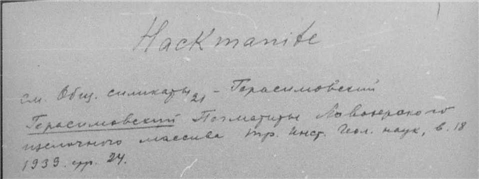 Hackmanite
см. Общ. силикаты 21 - Герасимовский
Герасимовский Пегматиты Ловозерского
щелочного массива Тр. Инст. Геол. наук, в. 18
1939. стр. 24.